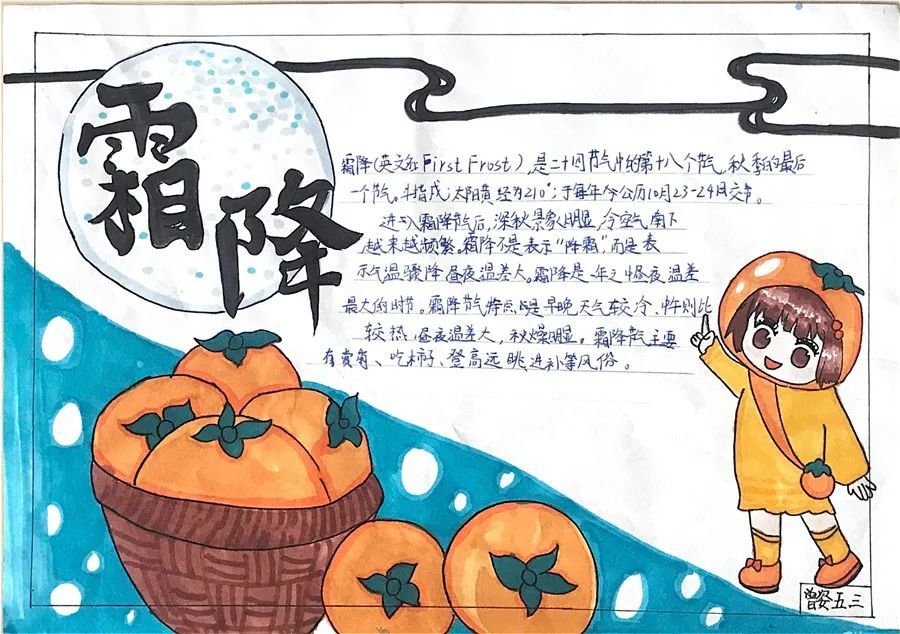 霜降
霜降(英文名 First Frost),是二十四节气中的第十八个节气,秋季的最后
一个节气。斗指戌;太阳黄经为210°;于每年公历10月23-24日交节。
进入霜降节气后,深秋景象明显,冷空气南下
越来越频繁。霜降不是表示“降霜”,而是表
示气温骤降昼夜温差大。霜降是一年之中昼夜温差
最大的时节。霜降节气特点是早晚天气较冷、中午则比
较热,昼夜温差大,秋燥明显。霜降节气主要
有赏菊、吃柿子、登高远眺、进补等风俗。
五三